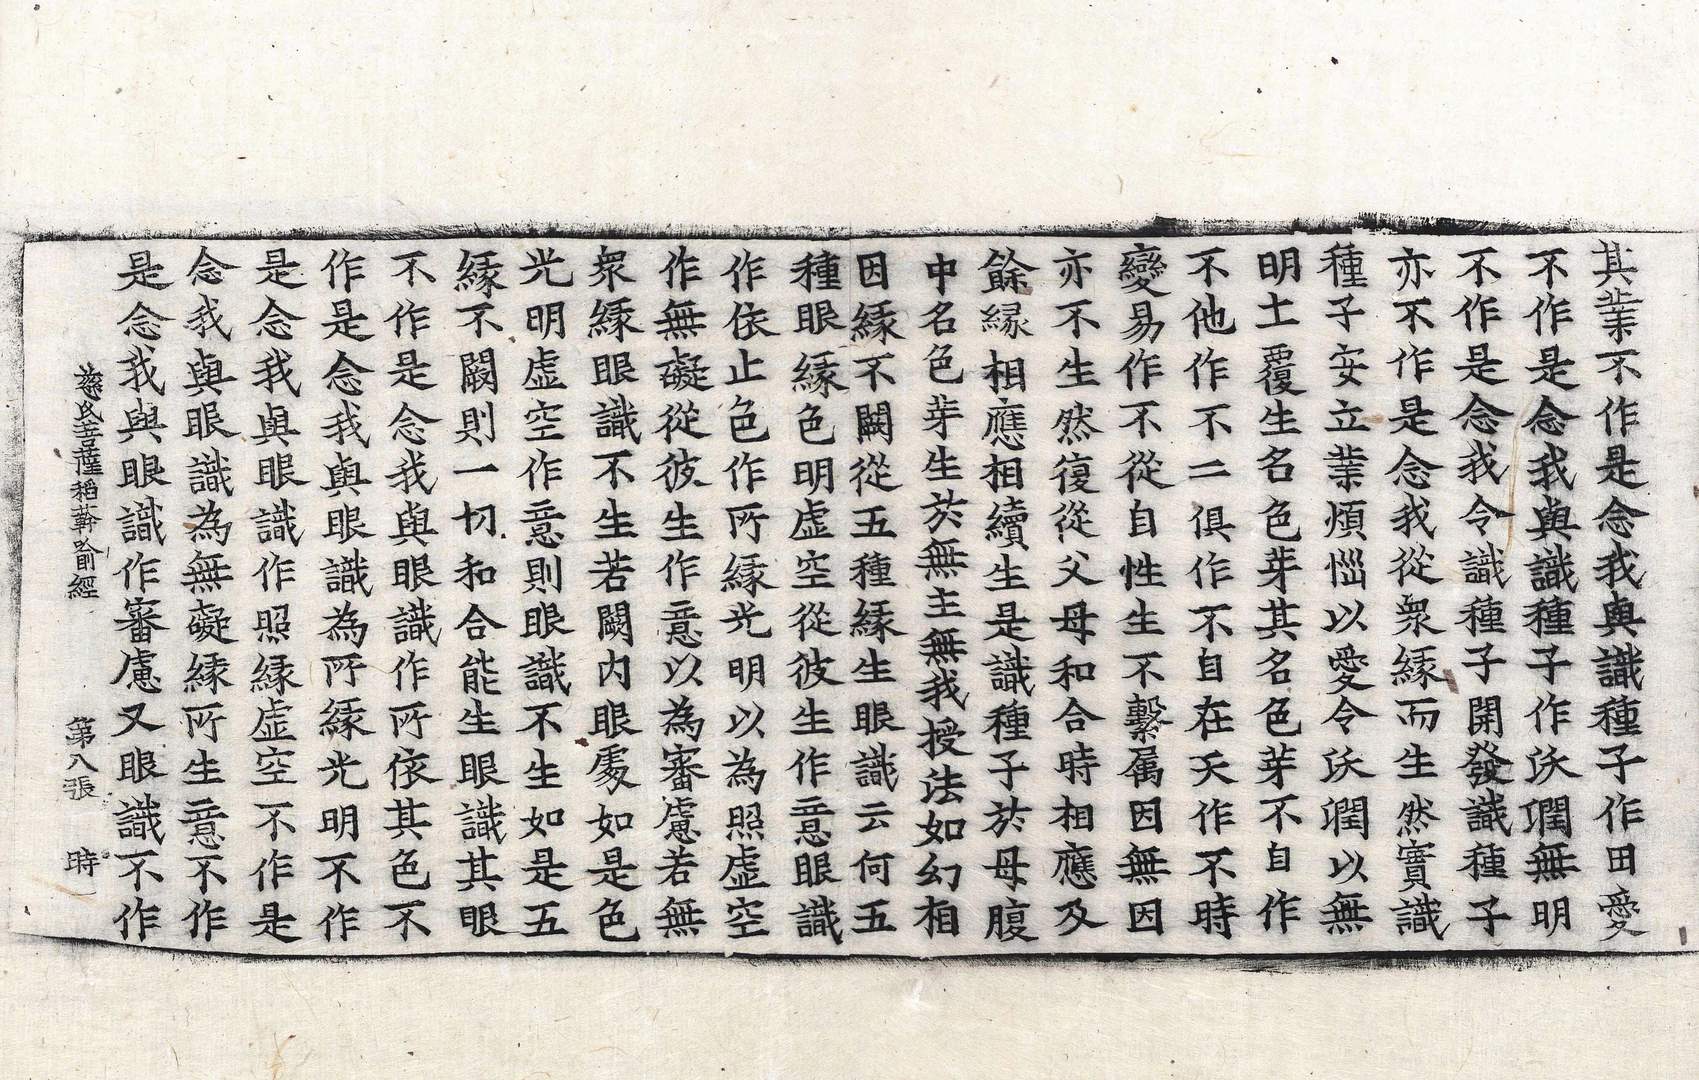 其業不作是念我與識種子作田愛
不作是念我與識種子作沃潤無明
不作是念我令識種子開發識種子
亦不作是念我從衆緣而生然實識
種子安立業煩惱以愛令沃潤以無
明土覆生名色芽其名色芽不自作
不他作不二俱作不自在天作不時
變易作不從自性生不繫属因無因
亦不生然復從父母和合時相應及
餘縁相應相續生是識種子於母腹
中名色芽生於無主無我授法如幻相
因緣不闕從五種緣生眼識云何五
種眼緣色明虛空從彼生作意眼識
作依止色作所緣光明以為照虛空
作無礙從彼生作意以為審慮若無
衆緣眼識不生若闕内眼處如是色
光明虛空作意則眼識不生如是五
緣不闕則一切和合能生眼識其眼
不作是念我與眼識作所依其色不
作是念我與眼識為所緣光明不作
是念我與眼識作照緣虛空不作是
念我與眼識為無礙緣所生意不作
是念我與眼識作審慮又眼識不作
慈氏菩薩稻𦼮喻經 第八張 時